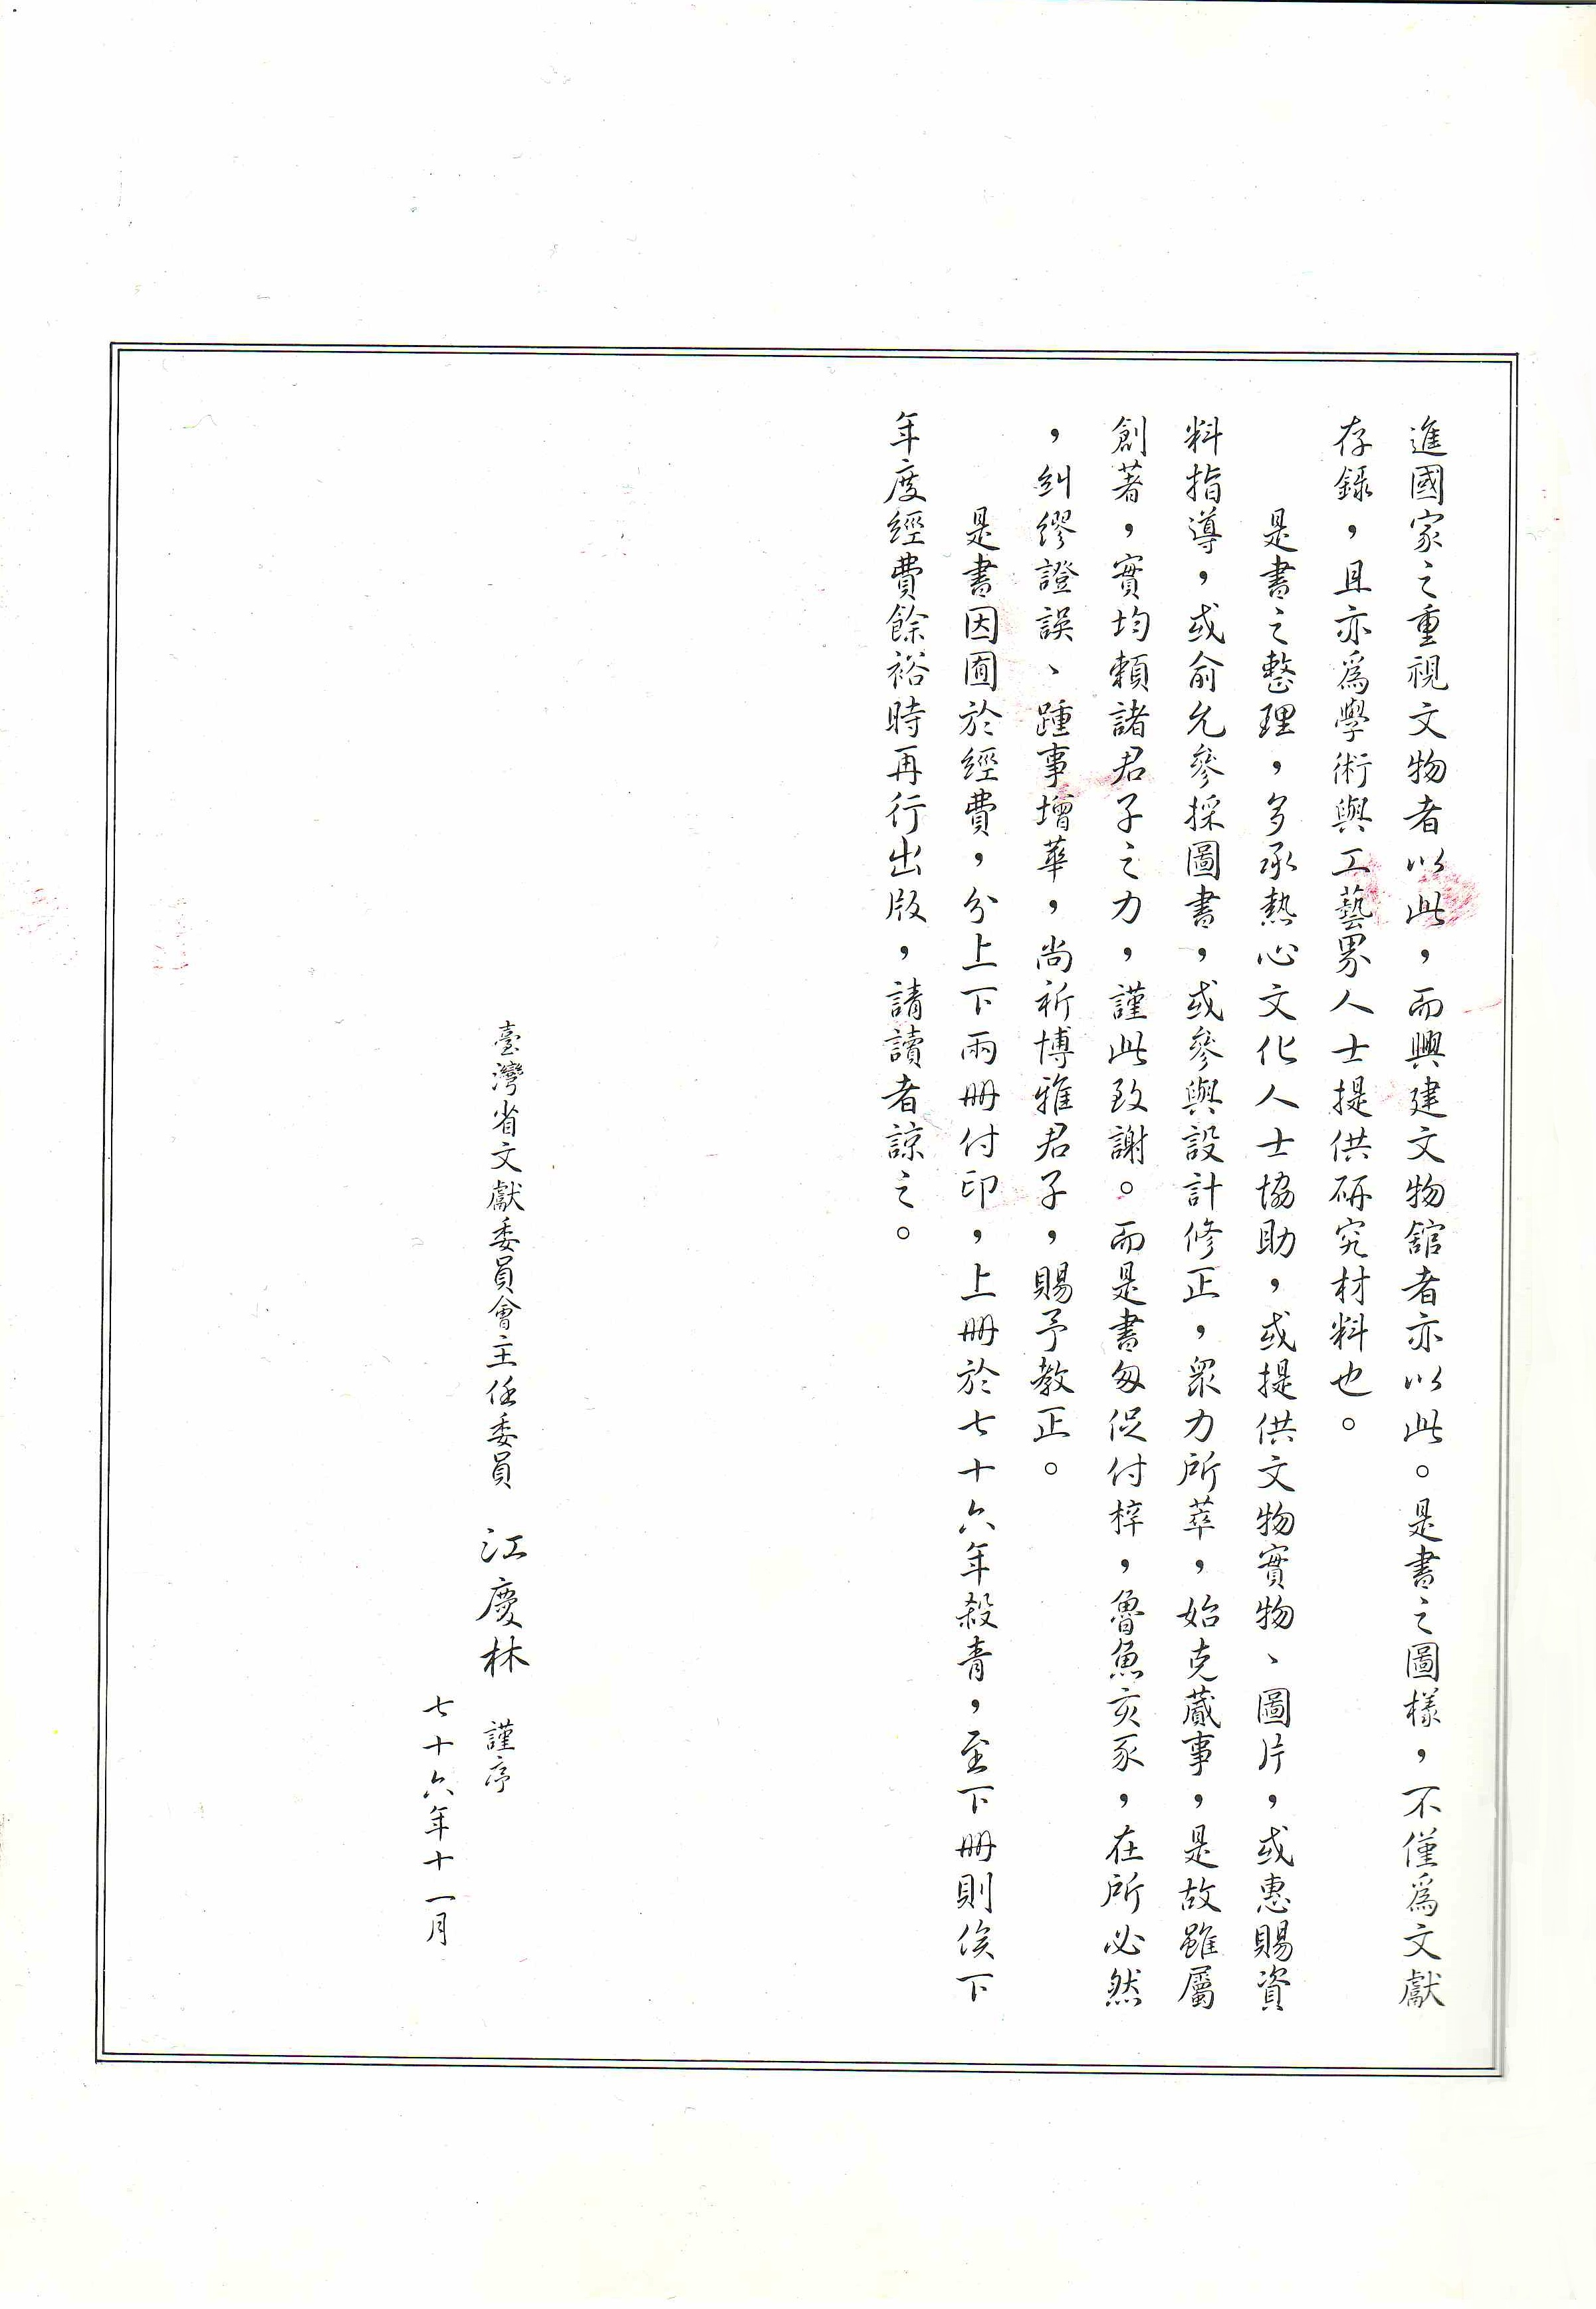 進國家之重視文物者以此，而興建文物舘者亦以此。是書之圖樣，不僅為文獻
存錄，且亦為學術與工藝界人士提供研究材料也。
是書之整理，多承熱心文化人士協助，或提供文物實物、圖片，或惠賜資
料指導，或俞允參採圖書，或參與設計修正，眾力所萃，始克蕆事，是故雖屬
創著，實均賴諸君子之力，謹此致謝。而是書匆促付梓，魯魚亥豕，在所必然
，糾繆證誤、踵事增華，尚祈博雅君子，賜予教正。
是書因囿於經費，分上下兩冊付印，上冊於七十六年殺青，至下冊則俟下
年度經費餘裕時再行出版，請讀者諒之。
臺灣省文獻委員會主任委員 江慶林 謹序
七十六年十一月